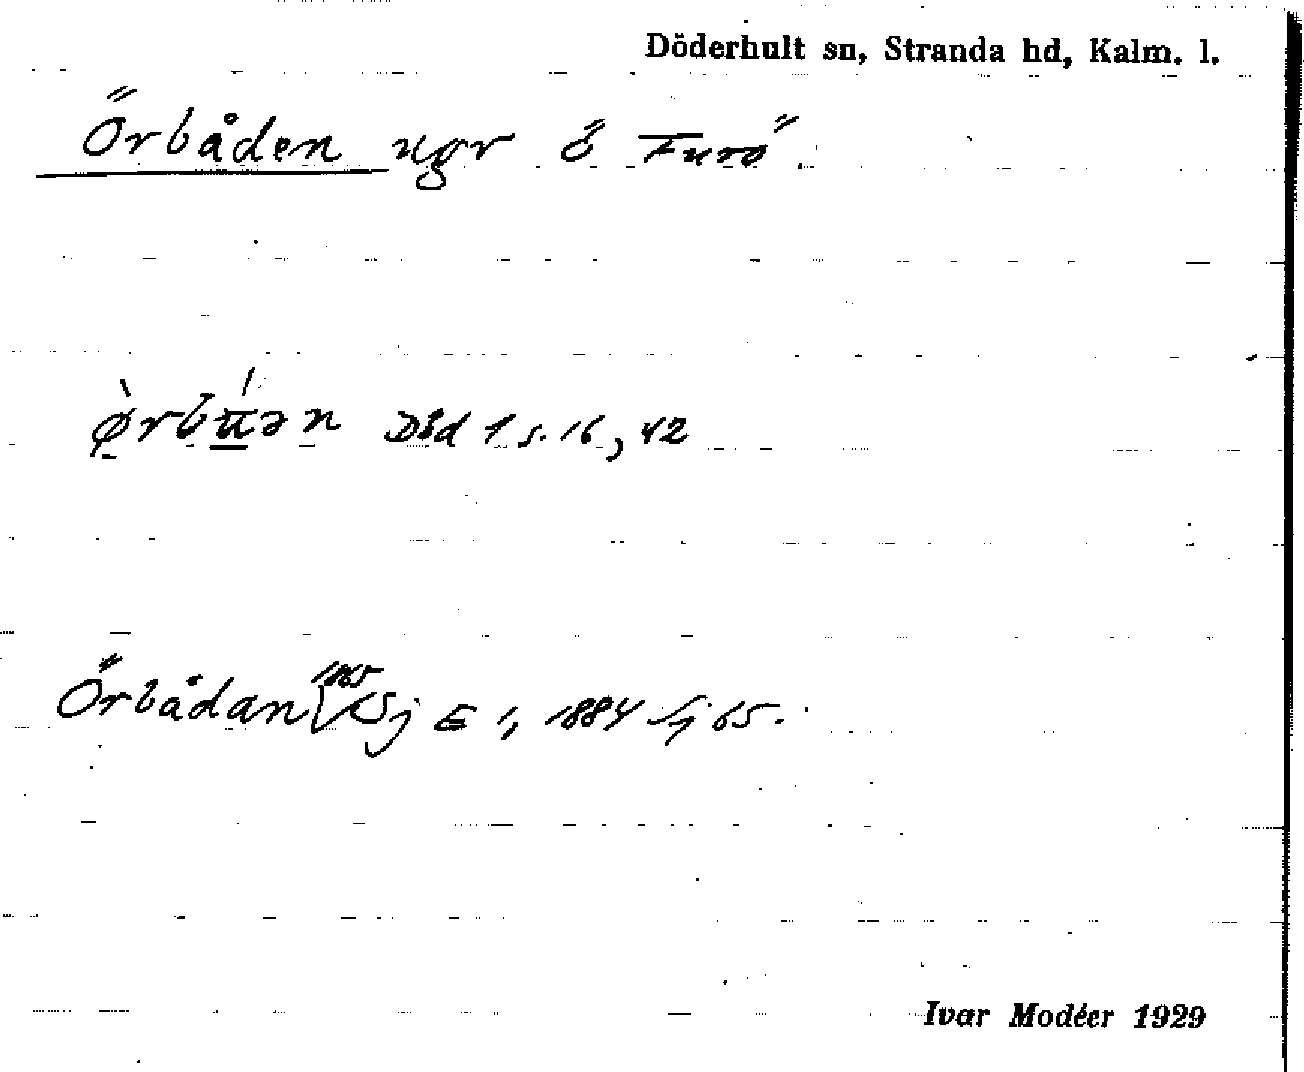 Döderhult sn, Stranda hd, Kalm. l.
Örbåden ugr ö Furö.
ǿrbu̲ən Död 1 s. 16, 42
Örbådan Sj E 1, 1884 Sj 65.
Ivar Modéer 1929